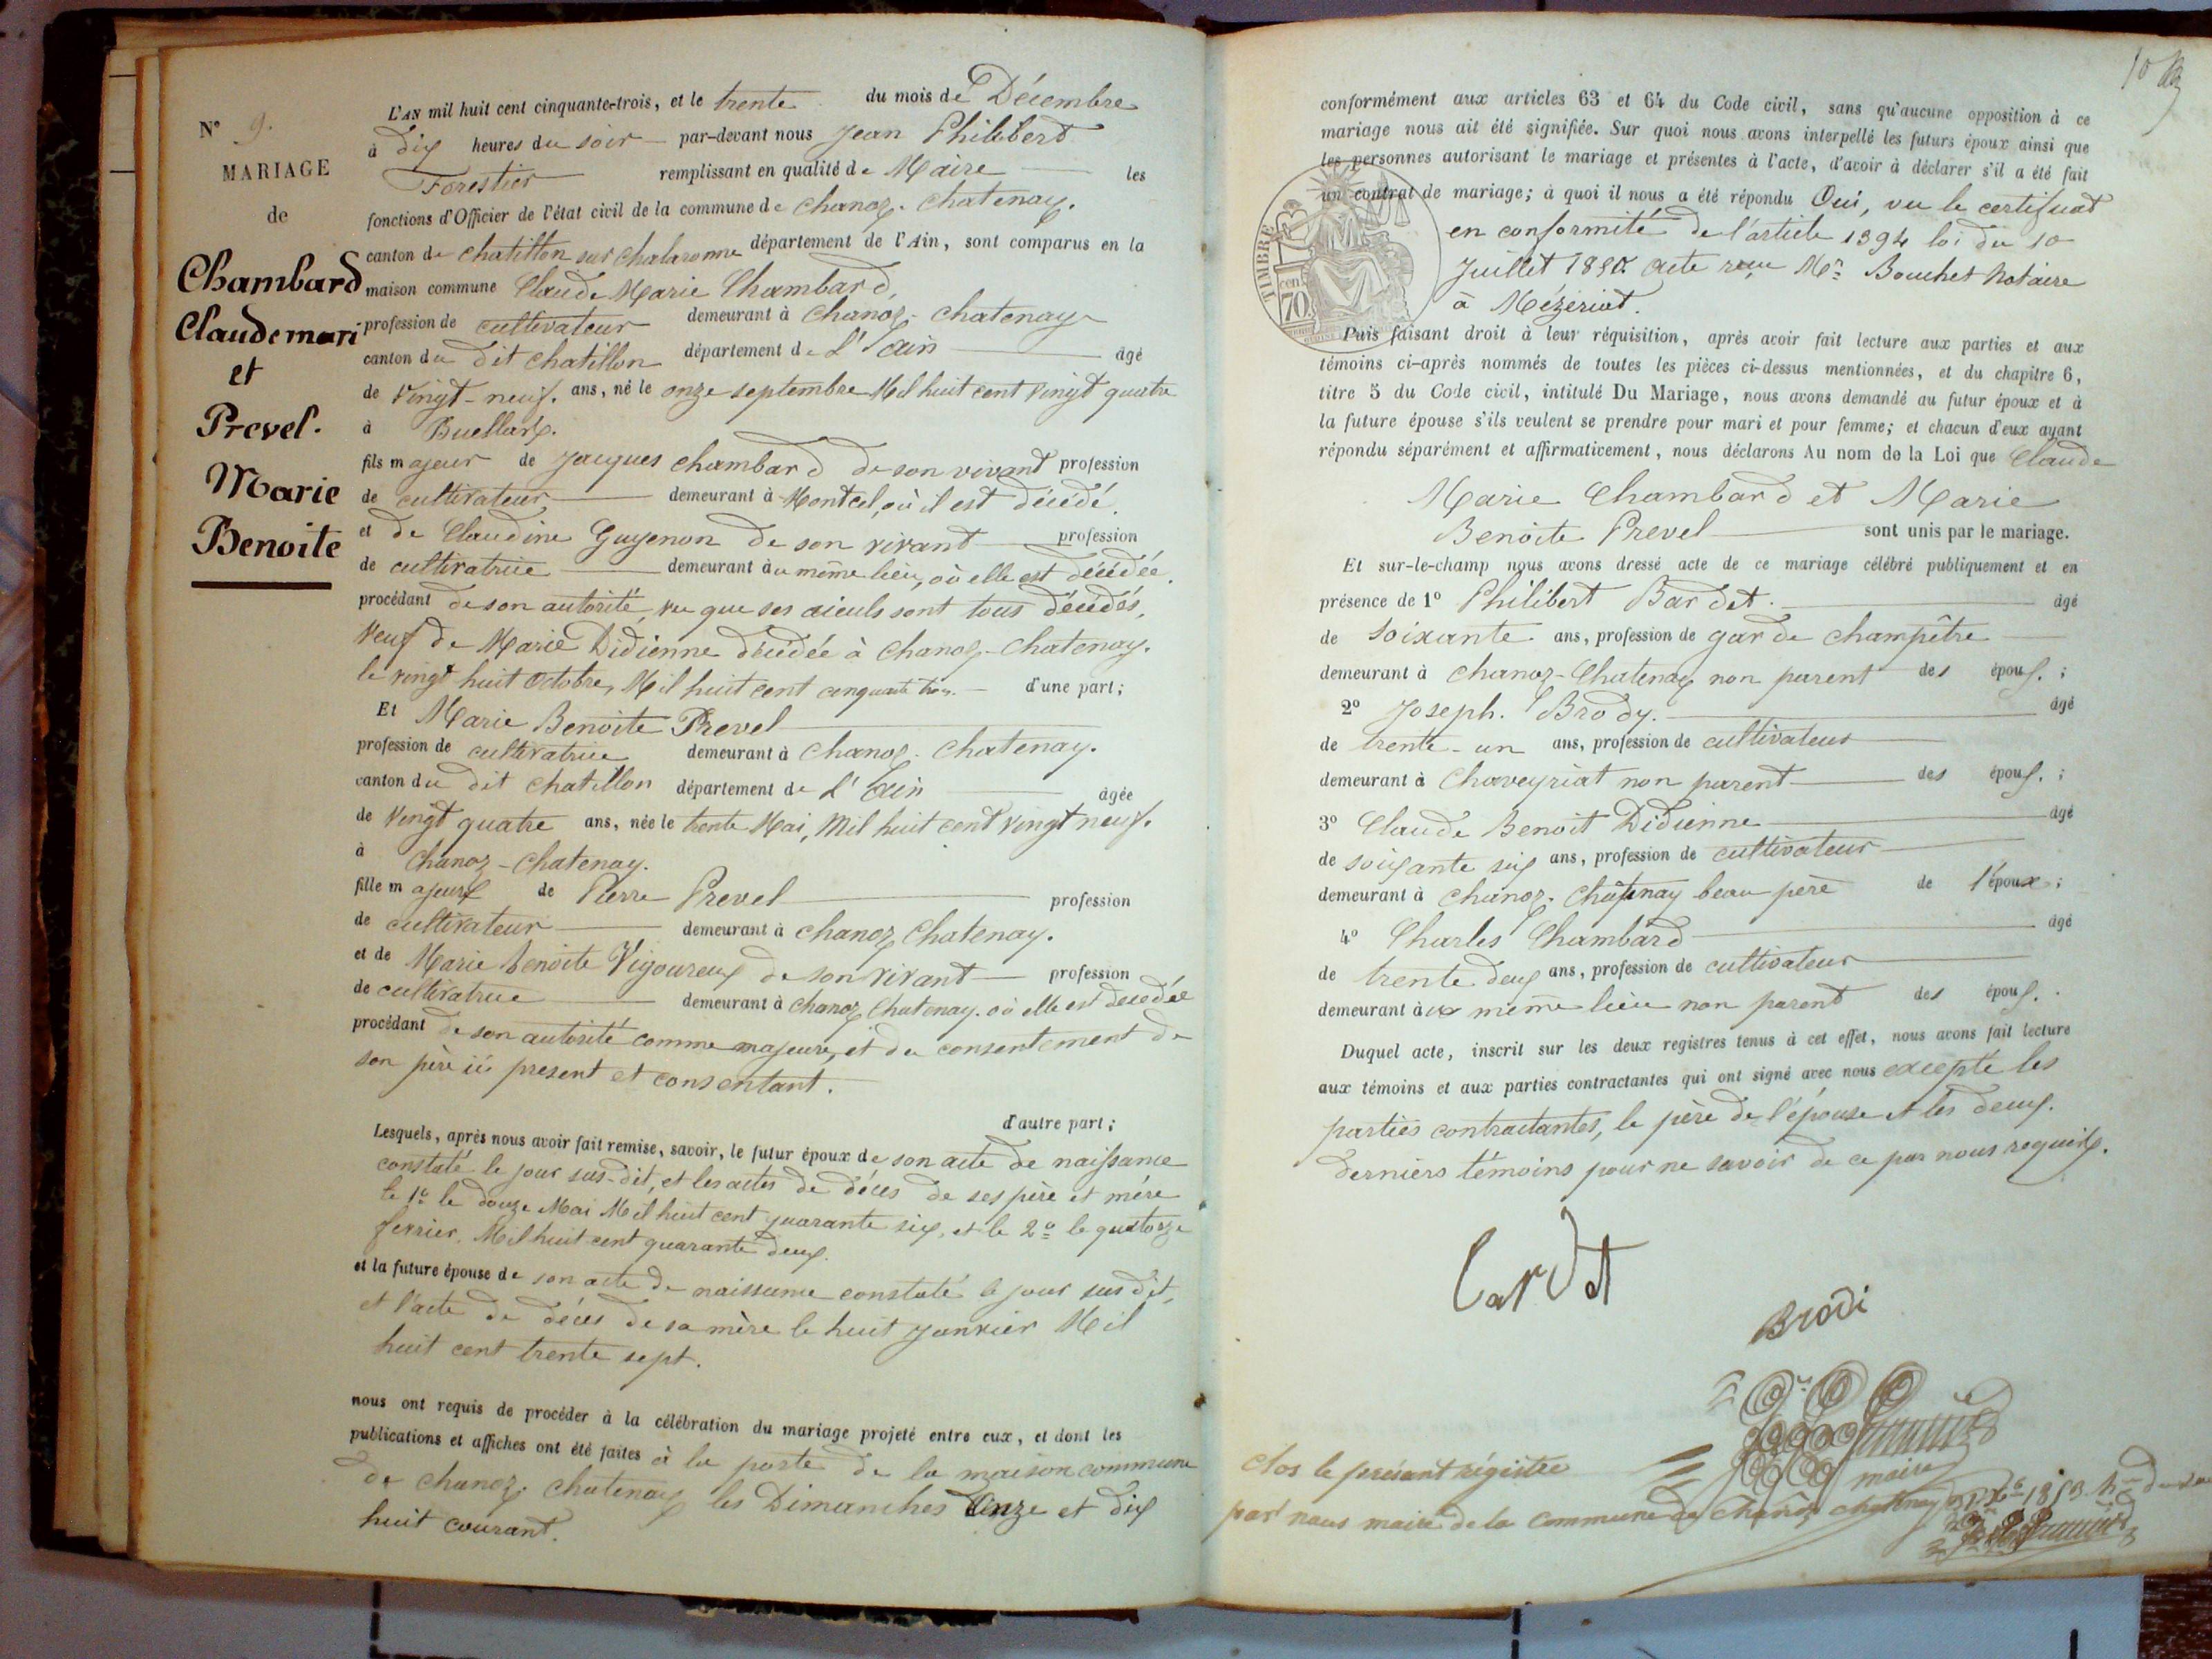 N° 9.
MARIAGE
de
Chambard
Claude mari
et
Prevel.
Marie
Benoite
L'AN mil huit cent cinquante-trois, et le trente du mois de Décembre
à dix heures du soir par-devant nous Jean Philibert
Forestier remplissant en qualité de Maire les
fonctions d'Officier de l'état civil de la commune de Chanoz-Chatenay.
canton de Chatillon sur Chalaronne département de l'Ain, sont comparus en la
maison commune Claude Marie Chambard,
profession de cultivateur demeurant à Chanoz-Chatenay
canton du dit Chatillon département de L'ain âgé
de Vingt-neuf. ans, né le onze septembre Mil huit cent vingt quatre
à Buellas.
fils majeur de Jacques Chambard de son vivant profession
de cultivateur demeurant à Montcel, où il est décédé.
et de Claudine Guyenon de son vivant profession
de cultivatrice demeurant au même lieu, où elle est décédée.
procédant de son autorité, vu que ses aieuls sont tous décédés,
Veuf de Marie Didienne décédée à Chanoz-Chatenay.
le vingt huit Octobre, Mil huit cent cinquante trois. d'une part;
Et Marie Benoite Prevel
profession de cultivatrice demeurant à Chanoz-Chatenay.
canton du dit Chatillon département de L'ain âgée
de Vingt quatre ans, née le trente Mai, Mil huit cent vingt neuf.
à Chanoz-Chatenay.
fille majeure de Pierre Prevel profession
de cultivateur demeurant à Chanoz Chatenay.
et de Marie benoite Vigoureux de son vivant profession
de cultivatrice demeurant à Chanoz Chatenay. où elle est decedée
procédant de son autorité comme majeure, et du consentement de
son père ici present et consentant.
d'autre part;
Lesquels, après nous avoir fait remise, savoir, le futur époux de son acte de naissance
constaté le jour sus-dit, et les actes de décès de ses père et mère
le 1° le douze Mai Mil huit cent quarante six, et le 2° le quatorze
fevrier, Mil huit cent quarante deux.
et la future épouse de son acte de naissance constaté le jour sus dit,
et l'acte de décès de sa mère le huit Janvier Mil
huit cent trente sept.
nous ont requis de procéder à la célébration du mariage projeté entre eux, et dont les
publications et affiches ont été faites à la porte de la maison commune
de Chanoz. Chatenay les Dimanches Onze et dix
huit courant.
conformément aux articles 63 et 64 du Code civil, sans qu'aucune opposition à ce
mariage nous ait été signifiée. Sur quoi nous avons interpellé les futurs époux ainsi que
les personnes autorisant le mariage et présentes à l'acte, d'avoir à déclarer s'il a été fait
un contrat de mariage; à quoi il nous a été répondu Oui, vu le certificat
en conformité de l'article 1394 loi du 10
Juillet 1850. acte reçu Me Bouchet Notaire
à Mézériat.
TIMBRE
70
Puis faisant droit à leur réquisition, après avoir fait lecture aux parties et aux
témoins ci-après nommés de toutes les pièces ci-dessus mentionnées, et du chapitre 6,
titre 5 du Code civil, intitulé Du Mariage, nous avons demandé au futur époux et à
la future épouse s'ils veulent se prendre pour mari et pour femme; et chacun d'eux ayant
répondu séparément et affirmativement, nous déclarons Au nom de la Loi que Claude
Marie Chambard et Marie
Benoite Prevel sont unis par le mariage.
Et sur-le-champ nous avons dressé acte de ce mariage célébré publiquement et en
présence de 1° Philibert Bardet. âgé
de soixante ans, profession de garde champêtre
demeurant à Chanoz-Chatenay non parent des époux;
2° Joseph. Brody. âgé
de trente-un ans, profession de cultivateur
demeurant à Chaveyriat non parent des époux;
3° Claude Benoit Didienne âgé
de soixante six ans, profession de cultivateur
demeurant à Chanoz-Chatenay beau père de l'époux;
4° Charles Chambard âgé
de trente deux ans, profession de cultivateur
demeurant au même lieu non parent des époux.
Duquel acte, inscrit sur les deux registres tenus à cet effet, nous avons fait lecture
aux témoins et aux parties contractantes qui ont signé avec nous excepté les
parties contractantes, le père de l'épouse et les deux.
derniers témoins pour ne savoir de ce par nous requis.
Bardet
Brodi
maire
Clos le présent régistre
par nous maire de la commune de Chanoz Chatenay